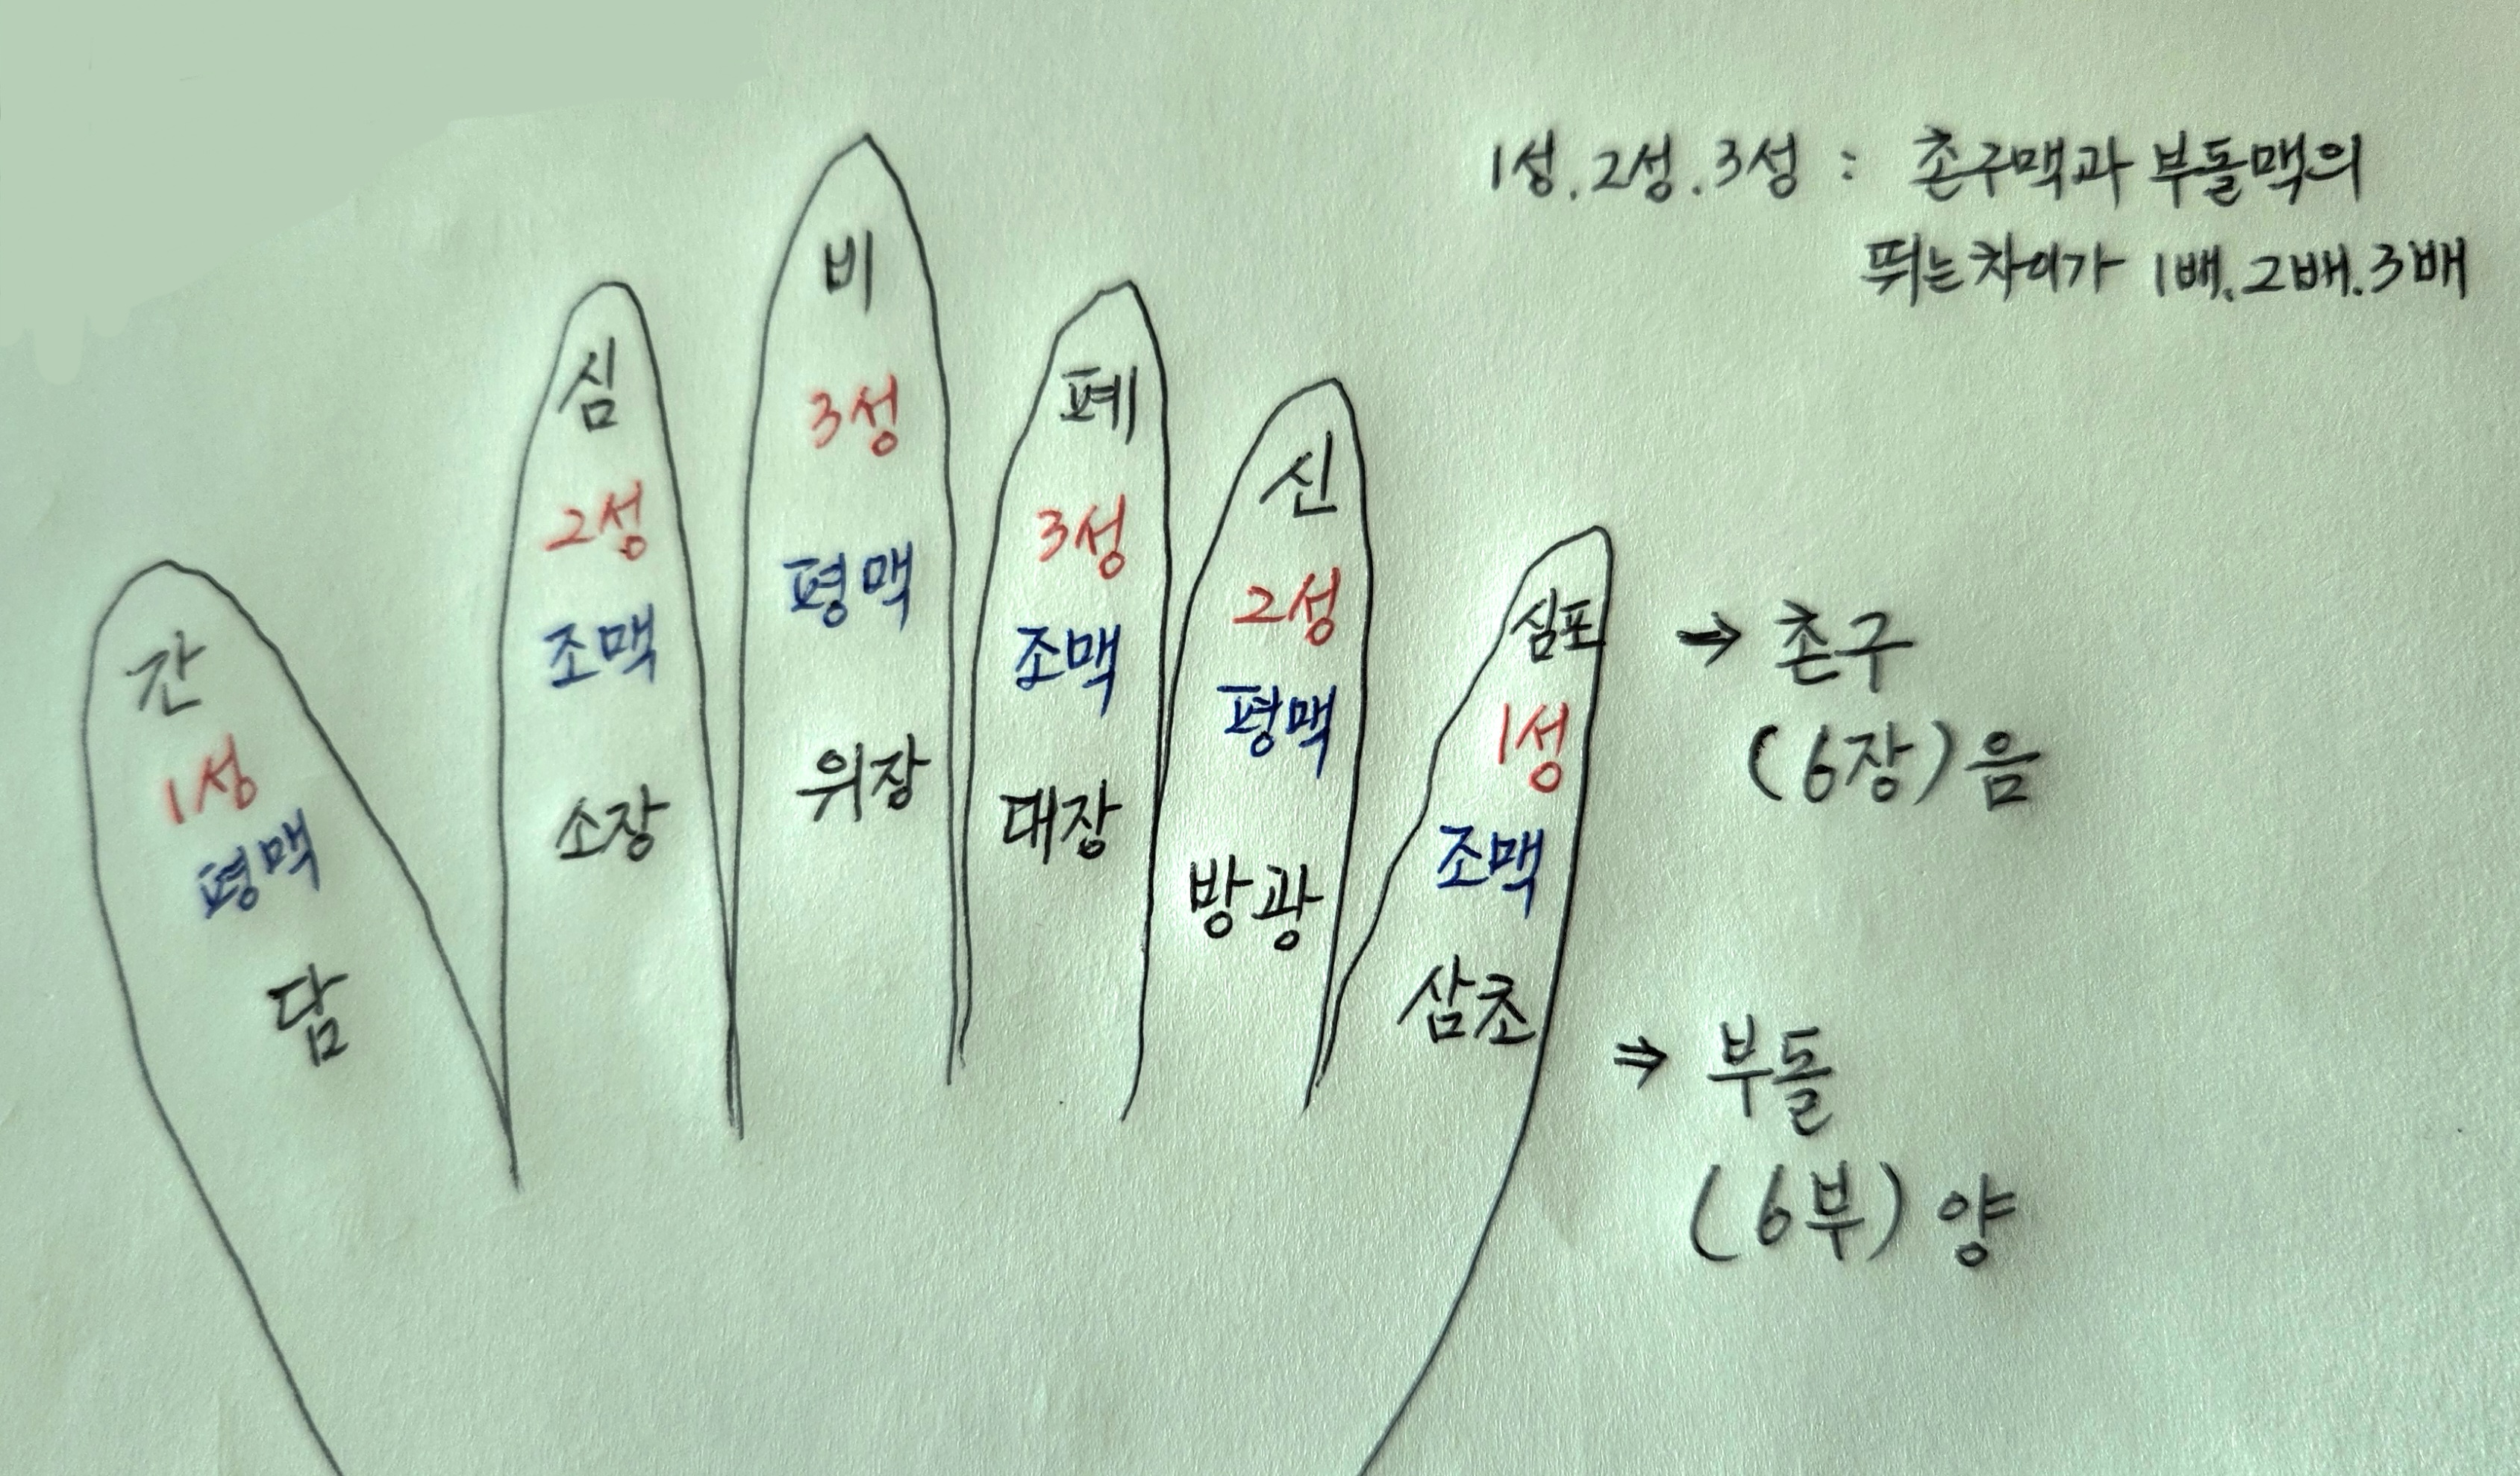 1성.2성.3성 : 촌구맥과 부돌맥의
뛰는차이가 1배.2배.3배
간
1성
평맥
담
심
2성
조맥
소장
비
3성
평맥
위장
폐
3성
조맥
대장
신
2성
평맥
방광
심포
1성
조맥
삼초
→ 촌구
(6장) 음
⇒ 부돌
(6부) 양